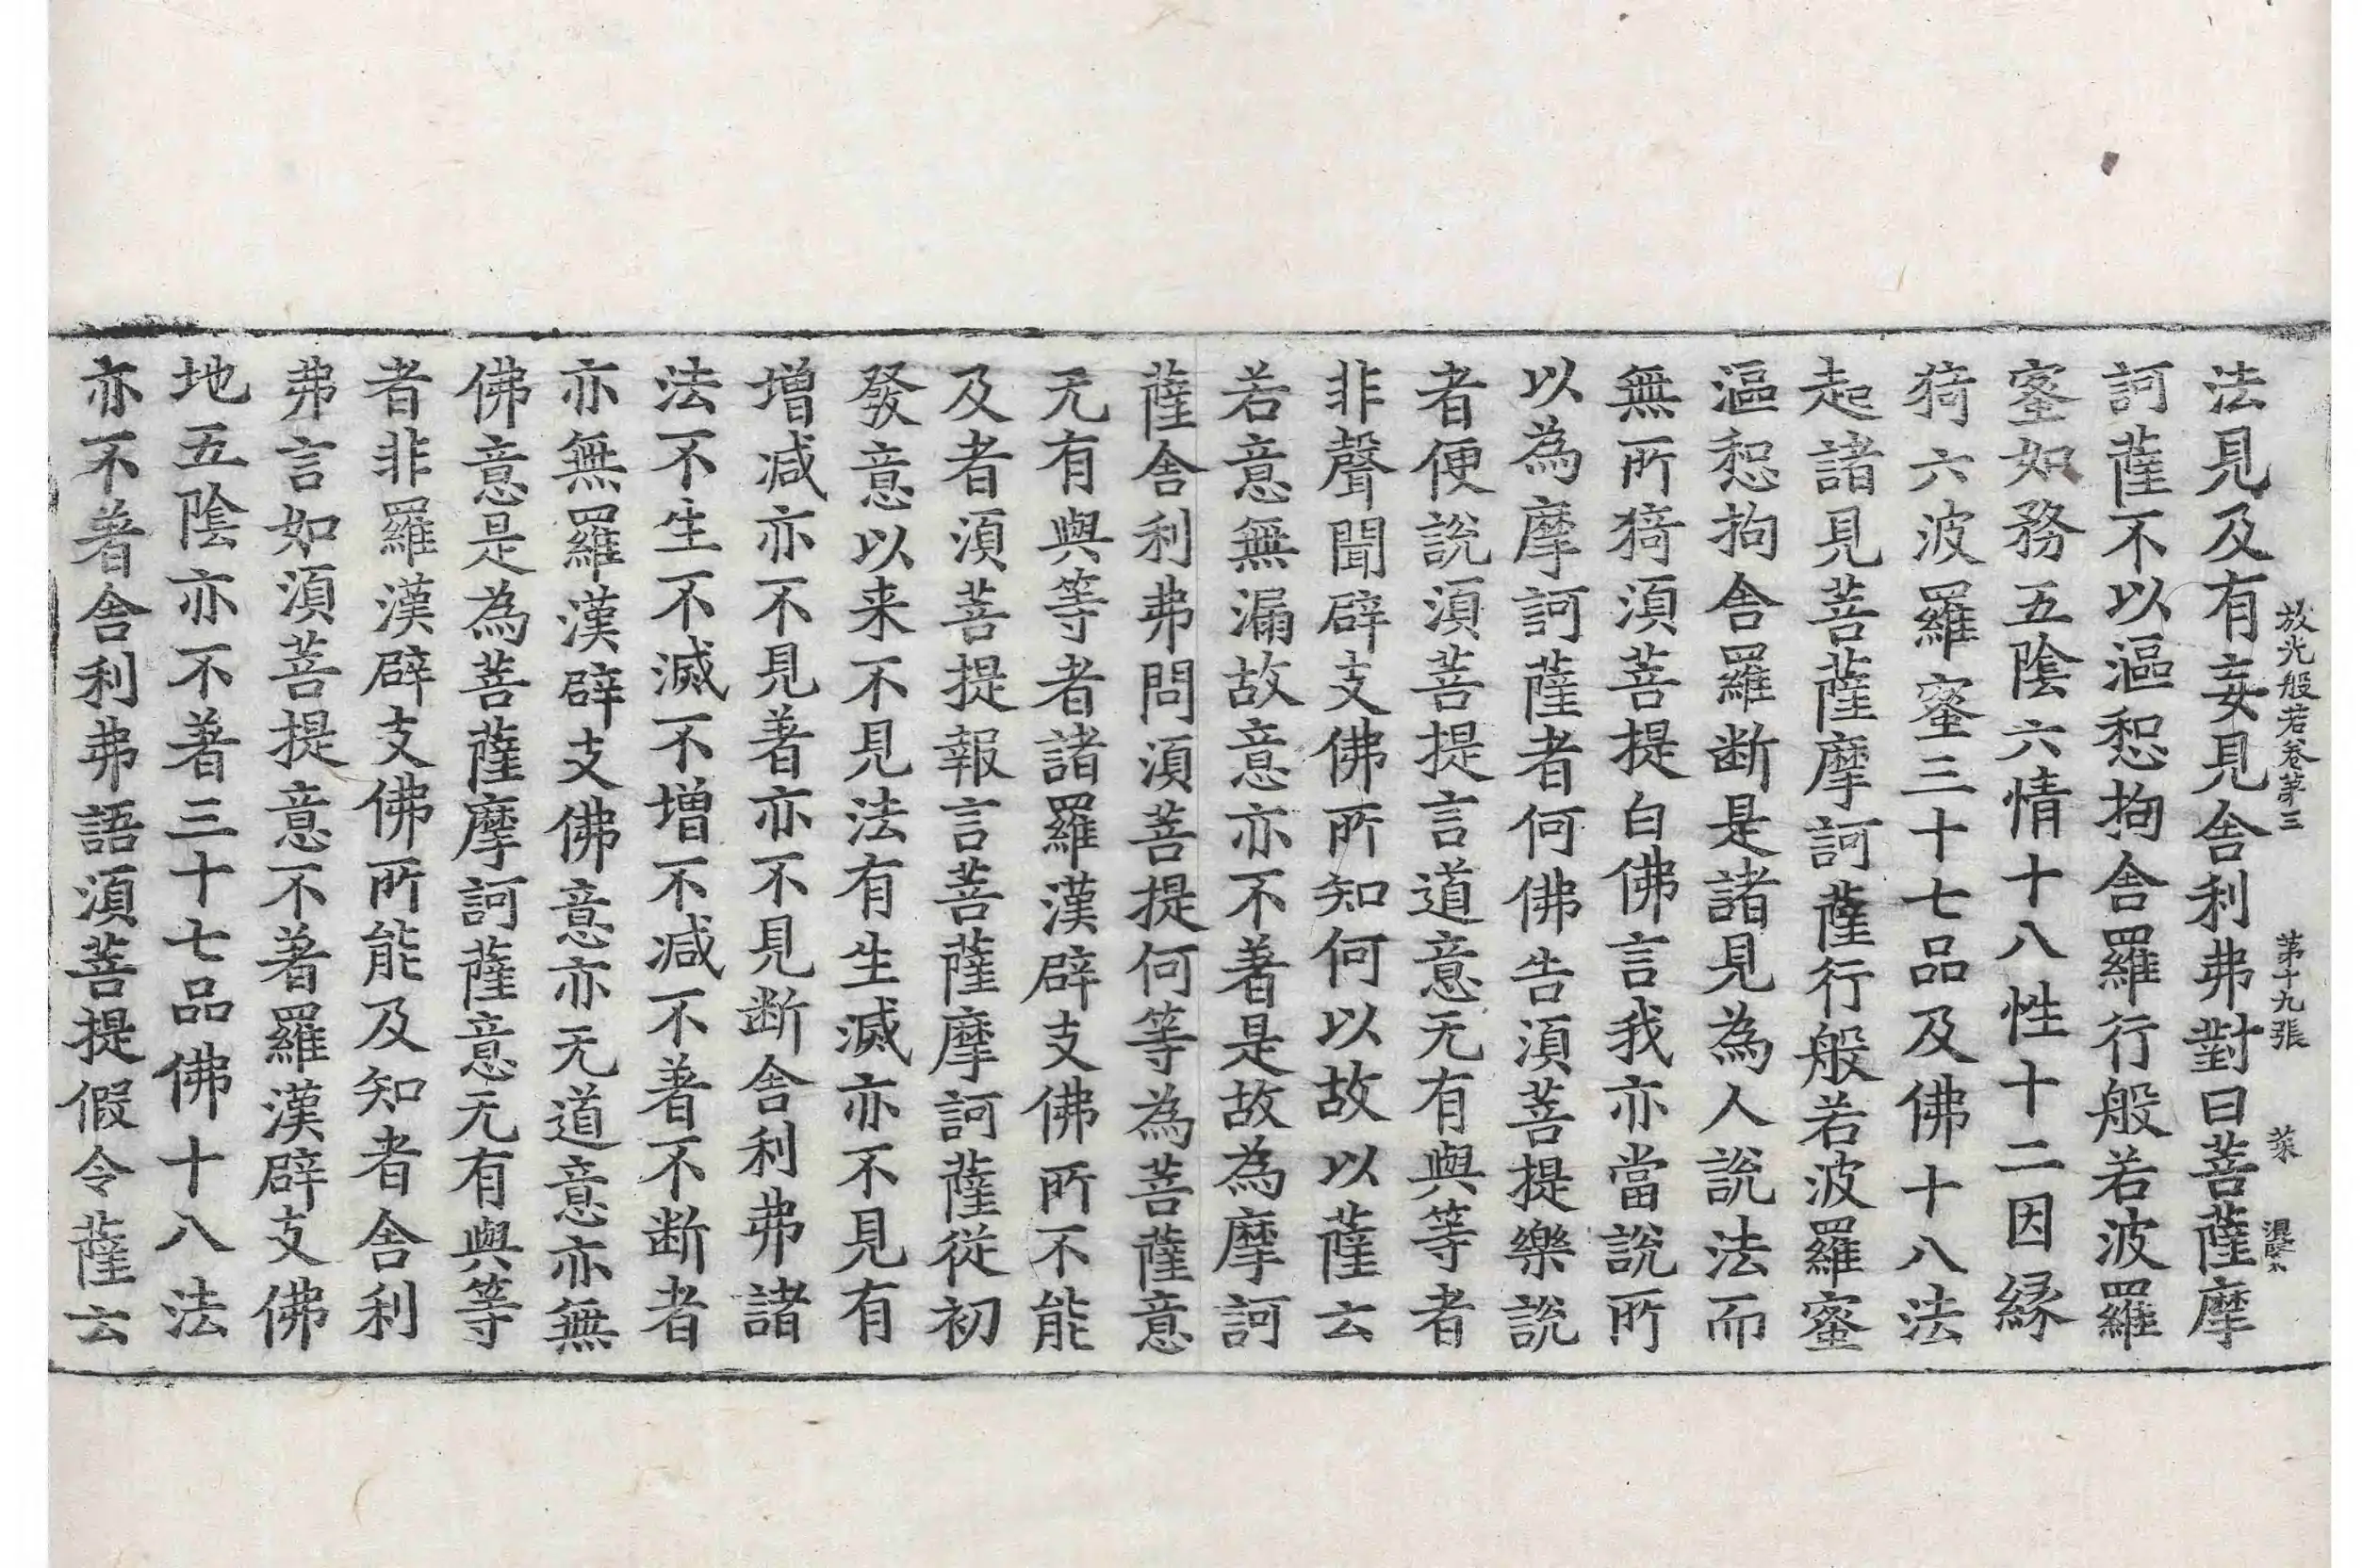 放光般若卷第三 第十九張 菜
法見及有妄見舍利弗對曰菩薩摩
訶薩不以漚惒拘舍羅行般若波羅
蜜如務五陰六情十八性十二因緣
猗六波羅蜜三十七品及佛十八法
起諸見菩薩摩訶薩行般若波羅蜜
漚惒拘舍羅断是諸見為人說法而
無所猗須菩提白佛言我亦當說所
以為摩訶薩者何佛告須菩提樂說
者便說須菩提言道意无有與等者
非聲聞辟支佛所知何以故以薩云
若意無漏故意亦不著是故為摩訶
薩舍利弗問須菩提何等為菩薩意
无有與等者諸羅漢辟支佛所不能
及者須菩提報言菩薩摩訶薩從初
發意以来不見法有生滅亦不見有
增减亦不見著亦不見断舍利弗諸
法不生不滅不增不减不著不断者
亦無羅漢辟支佛意亦无道意亦無
佛意是為菩薩摩訶薩意无有與等
者非羅漢辟支佛所能及知者舍利
弗言如須菩提意不著羅漢辟支佛
地五陰亦不著三十七品佛十八法
亦不著舍利弗語須菩提假令薩云